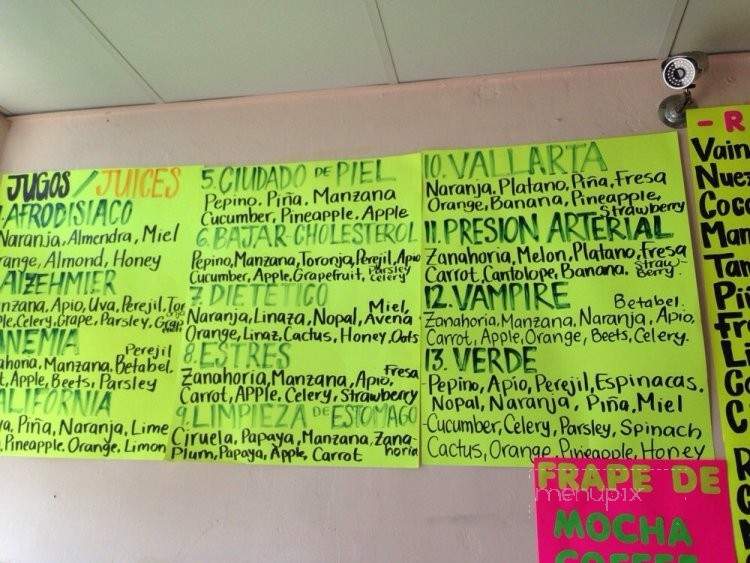 JUGOS / JUICES
1. AFRODISIACO
Naranja, Almendra, Miel
range, Almond, Honey
ALZEHMIER
nzana, Apio, Uva, Perejil,
ple, Celery, Grape, Parsley,
ANEMIA
Perejil
ahoria, Manzana, Betabel.
t, Apple, Beets, Parsley
ALIFORNIA
ya, Piña, Naranja, Lime
, Pineapple, Orange, Limon
5. CIUDADO DE PIEL
Pepino, Piña, Manzana
Cucumber, Pineapple, Apple
6. BAJAR CHOLESTEROL
Pepino, Manzana, Toronja, Perejil, Apio
Cucumber, Apple, Grapefruit, Parsley
Celery
7. DIETETICO
Naranja, Linaza, Nopal, Miel, Avena
Orange, Linaz, Cactus, Honey, Oats
8. ESTRES
Zanahoria, Manzana, Apio, Fresa
Carrot, Apple, Celery, Strawberry
9. LIMPIEZA DE ESTOMAGO
Ciruela, Papaya, Manzana, Zana-
horia
Plum, Papaya, Apple, Carrot
10. VALLARTA
Naranja, Platano, Piña, Fresa
Orange, Banana, Pineapple,
Strawberry
11. PRESION ARTERIAL
Zanahoria, Melon, Platano, Fresa
Carrot, Cantolope, Banana. Straw-
Berry.
12. VAMPIRE
Betabel.
Zanahoria, Manzana, Naranja, Apio,
Carrot, Apple, Orange, Beets, Celery.
13. VERDE
-Pepino, Apio, Perejil, Espinacas.
Nopal, Naranja, Piña, Miel
-Cucumber, Celery, Parsley, Spinach
Cactus, Orange, Pineapple, Honey
FRAPE DE
MOCHA
COFFEE
menupix
- R
Vain
Nuez
Coco
Man
Tam
Piñ
Fr
L